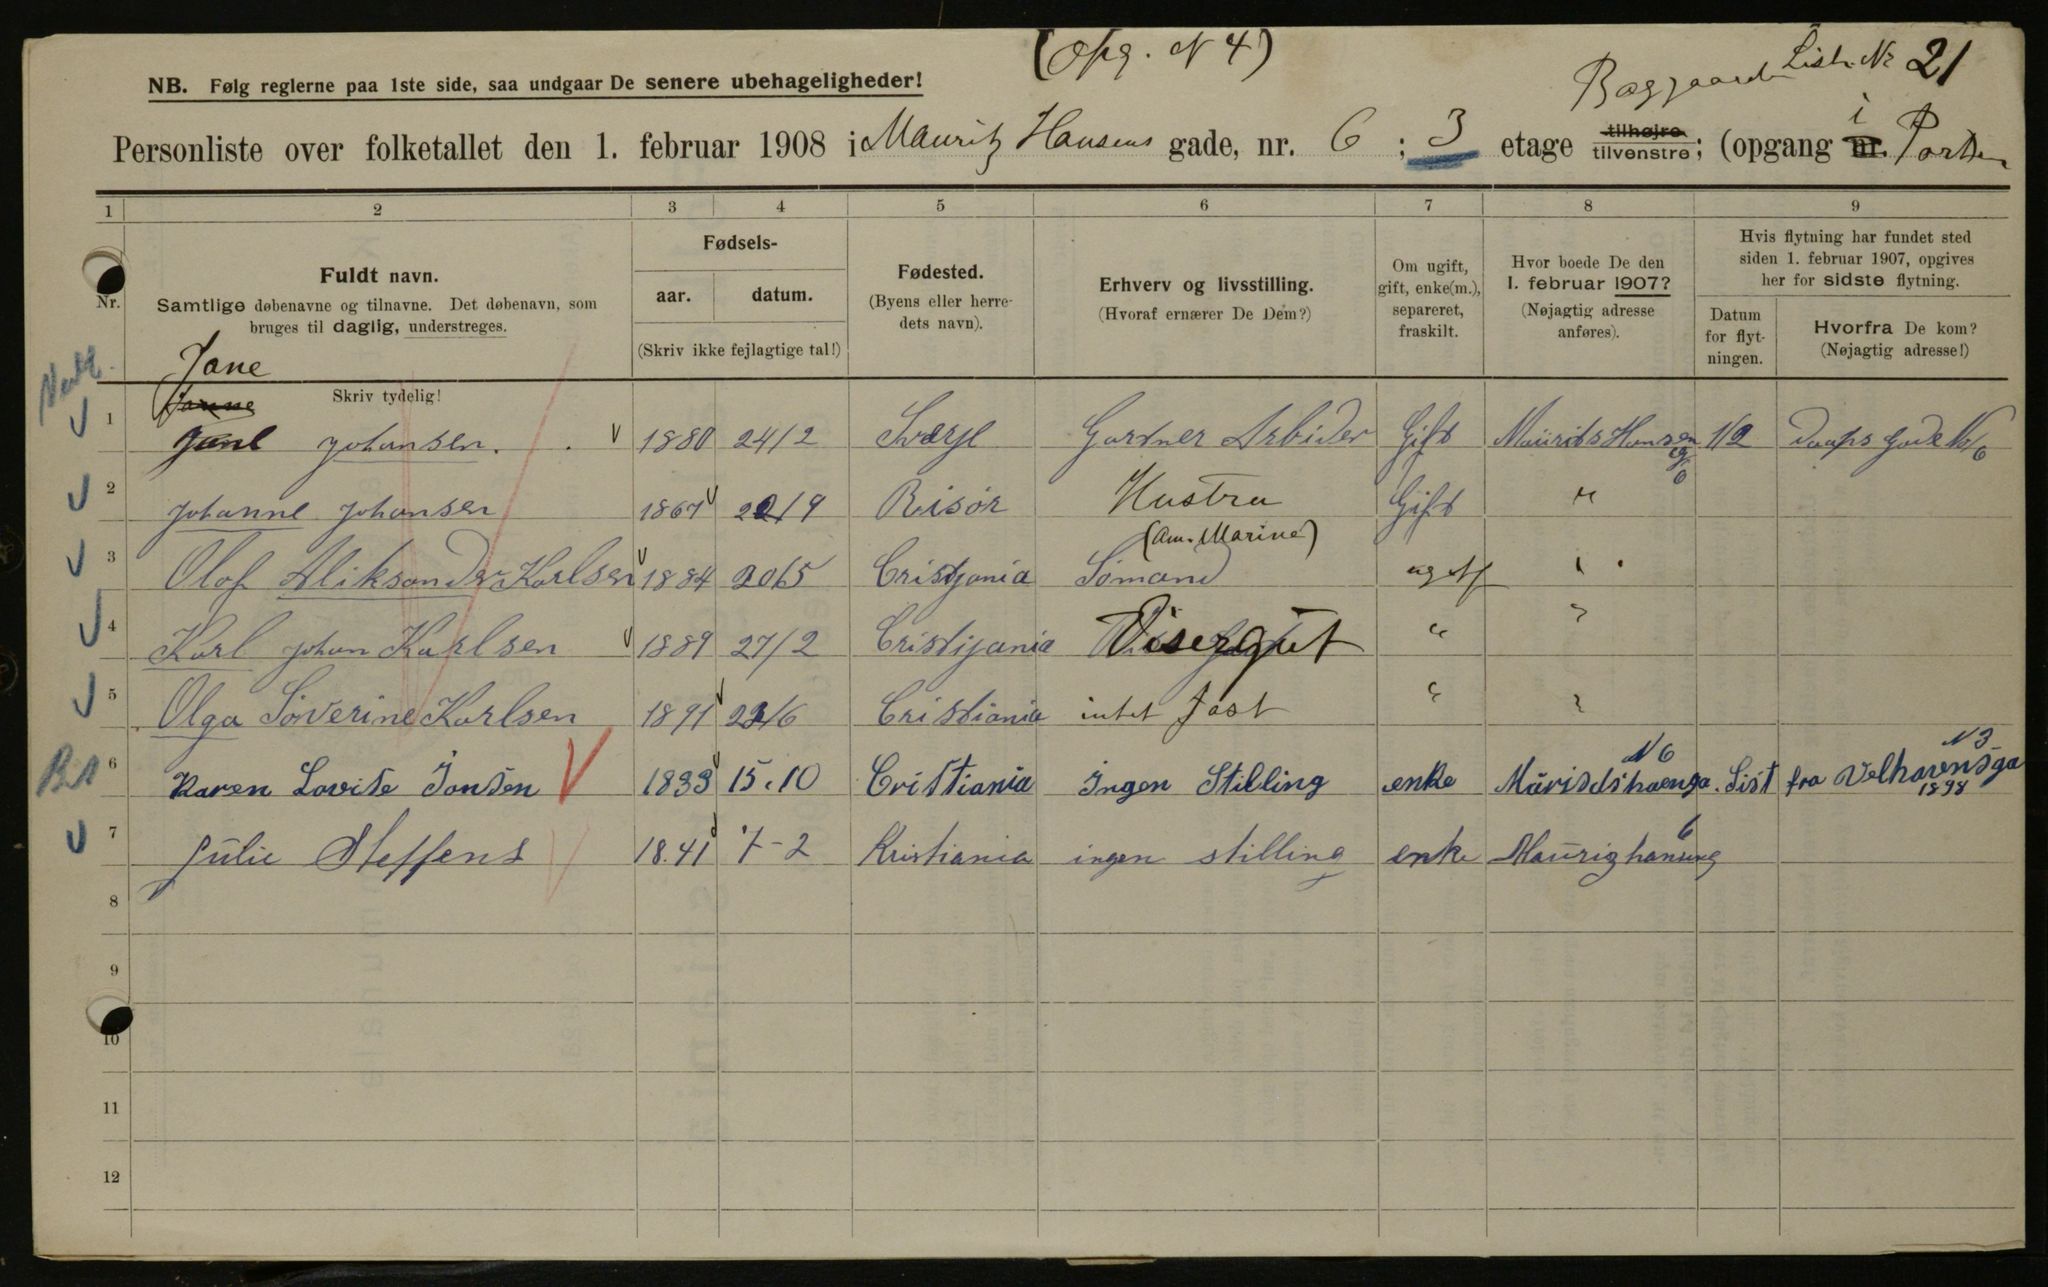 (Opg. N 4)
Liste Nr 21
NB. Følg reglerne paa 1ste side, saa undgaar De senere ubehageligheder!
Baggaarden
Personliste over folketallet den 1. februar 1908 i Mauritz Hansens gade, nr. 6 ; 3 etage tilhøjre tilvenstre; (opgang nr. i Porten
1 2 3 4 5 6 7 8 9
Nr.
Fuldt navn.
Samtlige døbenavne og tilnavne. Det døbenavn, som
bruges til daglig, understreges.
Skriv tydelig!
Fødsels-
aar. datum.
(Skriv ikke fejlagtige tal!)
Fødested.
(Byens eller herre-
dets navn).
Erhverv og livsstilling.
(Hvoraf ernærer De Dem?)
Om ugift,
gift, enke(m.),
separeret,
fraskilt.
Hvor boede De den
1. februar 1907?
(Nøjagtig adresse
anføres).
Hvis flytning har fundet sted
siden 1. februar 1907, opgives
her for sidste flytning.
Datum
for flyt-
ningen.
Hvorfra De kom?
(Nøjagtig adresse!)
Jane
1 Johansen. 1880 24/2 Sverje Gartner Arbider Gift Maurits Hansen g 6 1/2
2 Johanne Johansen 1867 /9 Risør Hustru Gift "
3 Olaf Aliksander Karlsen 1884 20/5 Cristjania Sømand (Am. Marine) "
4 Karl Johan Karlsen 1889 27/2 Cristijania Visergut " "
5 Olga Søverine Karlsen 1891 /6 Cristiania intet fast " "
6 Karen Lovise Jonsen 1833 15.10 Cristiania Ingen Stilling enke N 6 Sist fra Velhavensga N 3 1898
7 Julie Steffens 18.41 7-2 Kristiania ingen stilling enke 6
8
9
10
11
12